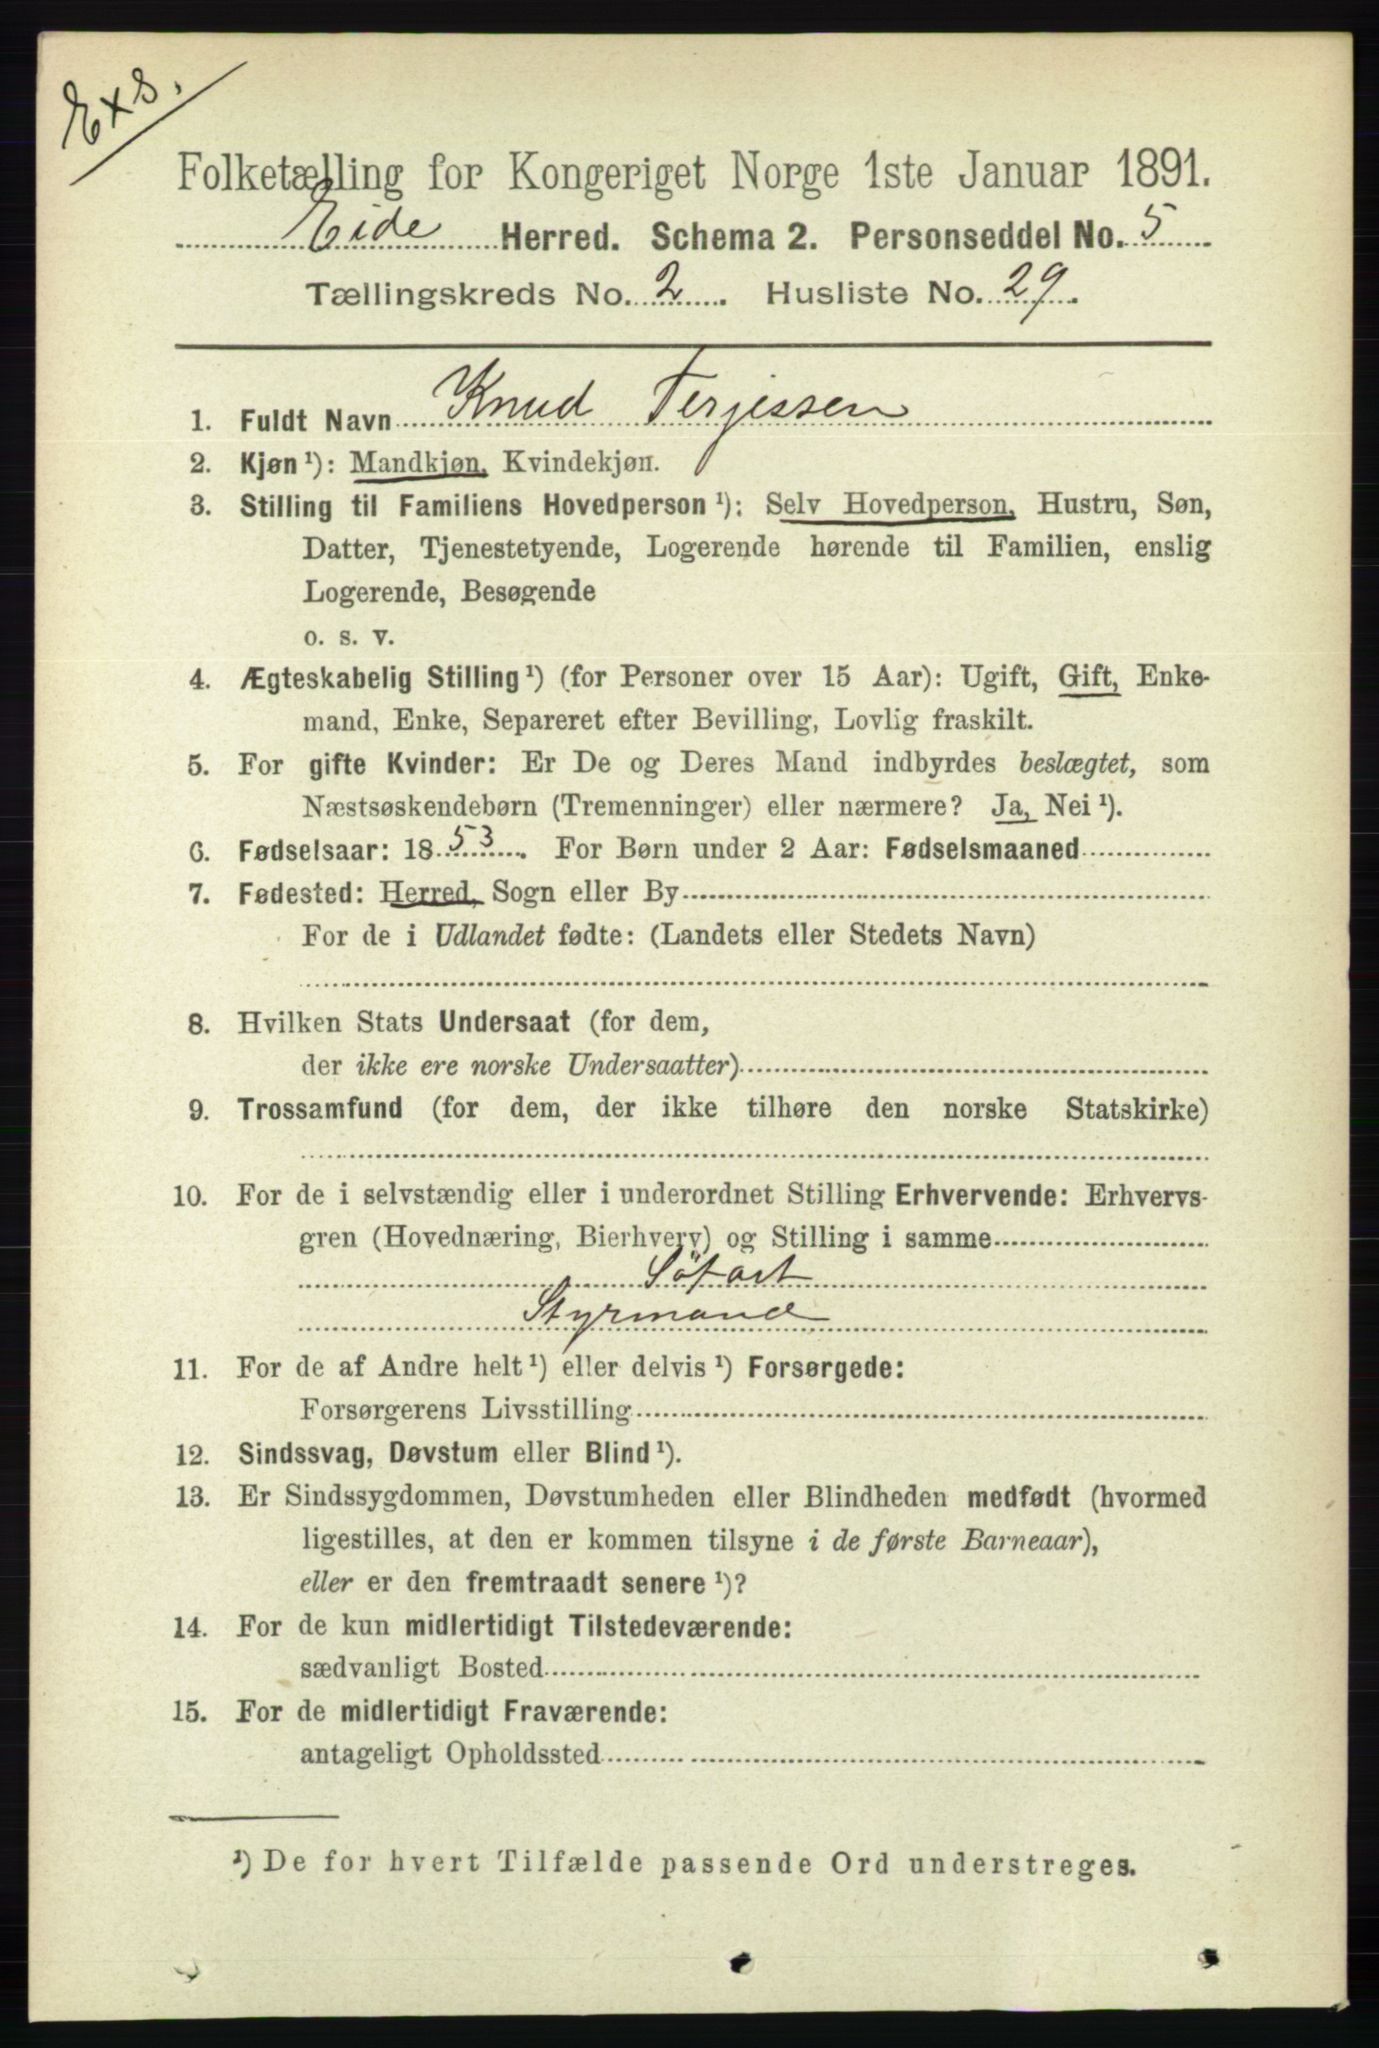 Exs.
Folketælling for Kongeriget Norge 1ste Januar 1891.
Eide Herred. Schema 2. Personseddel No. 5
Tællingskreds No. 2. Husliste No. 29.
1. Fuldt Navn Knud Terjessen
2. Kjøn ¹): Mandkjøn, Kvindekjøn.
3. Stilling til Familiens Hovedperson ¹): Selv Hovedperson, Hustru, Søn,
Datter, Tjenestetyende, Logerende hørende til Familien, enslig
Logerende, Besøgende
o. s. v.
4. Ægteskabelig Stilling ¹) (for Personer over 15 Aar): Ugift, Gift, Enke-
mand, Enke, Separeret efter Bevilling, Lovlig fraskilt.
5. For gifte Kvinder: Er De og Deres Mand indbyrdes beslægtet, som
Næstsøskendebørn (Tremenninger) eller nærmere? Ja, Nei ¹).
6. Fødselsaar: 1853. For Børn under 2 Aar: Fødselsmaaned
7. Fødested: Herred, Sogn eller By
For de i Udlandet fødte: (Landets eller Stedets Navn)
8. Hvilken Stats Undersaat (for dem,
der ikke ere norske Undersaatter)
9. Trossamfund (for dem, der ikke tilhøre den norske Statskirke)
10. For de i selvstændig eller i underordnet Stilling Erhvervende: Erhvervs-
gren (Hovednæring, Bierhverv) og Stilling i samme
Söfart
Styrmand
11. For de af Andre helt ¹) eller delvis ¹) Forsørgede:
Forsørgerens Livsstilling
12. Sindssvag, Døvstum eller Blind ¹).
13. Er Sindssygdommen, Døvstumheden eller Blindheden medfødt (hvormed
ligestilles, at den er kommen tilsyne i de første Barneaar),
eller er den fremtraadt senere ¹)?
14. For de kun midlertidigt Tilstedeværende:
sædvanligt Bosted
15. For de midlertidigt Fraværende:
antageligt Opholdssted
¹) De for hvert Tilfælde passende Ord understreges.